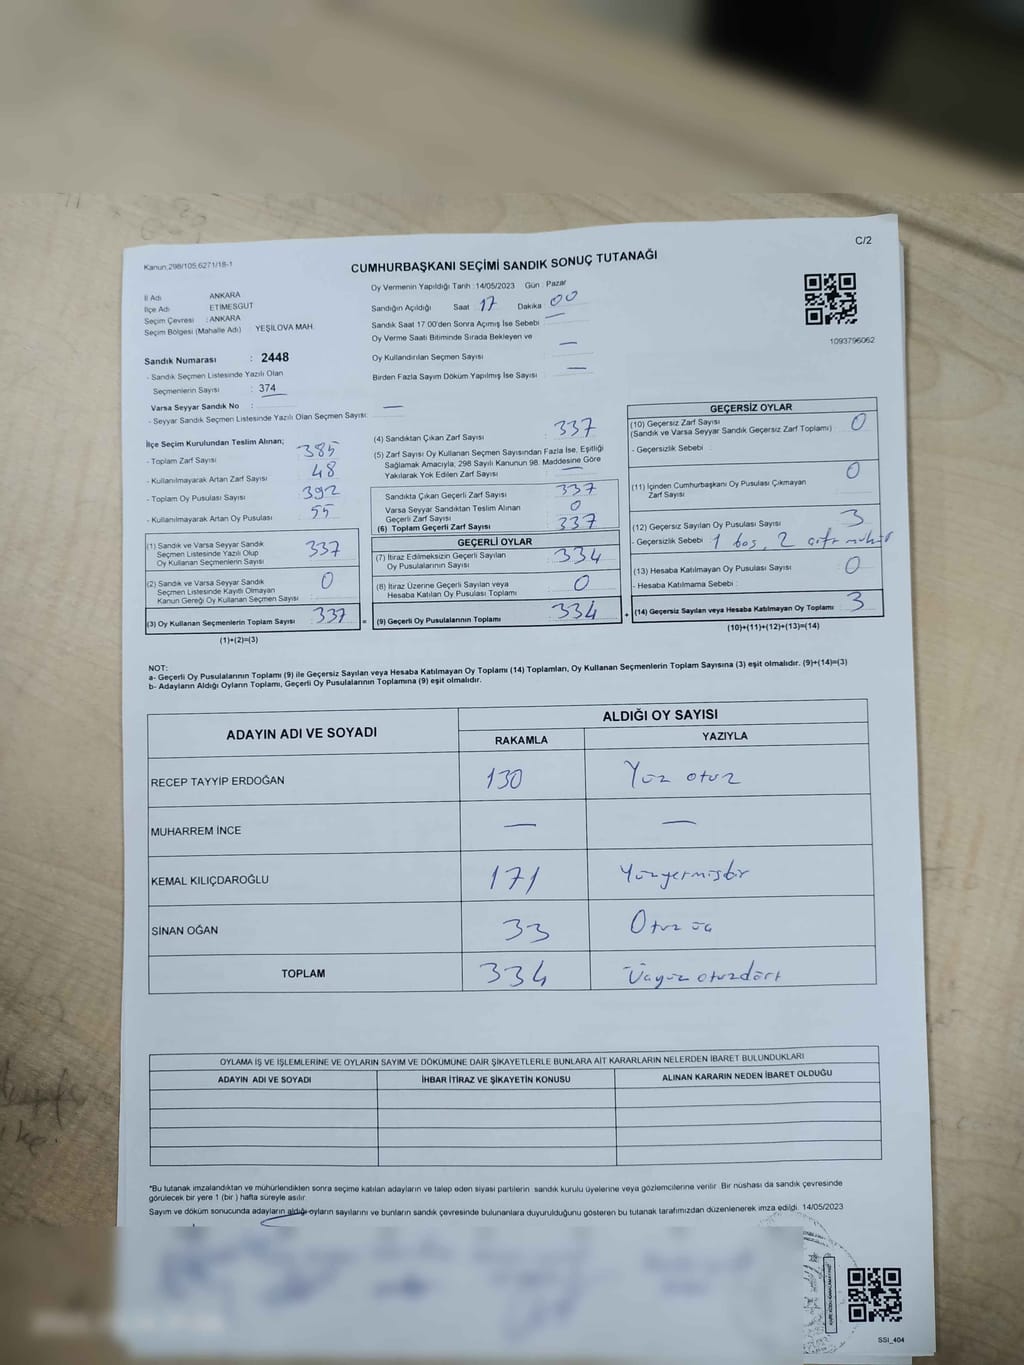 C/2
Kanun,298/105,6271/18-1
CUMHURBAŞKANI SEÇİMİ SANDIK SONUÇ TUTANAĞI
İl Adı ANKARA
İlçe Adı ETİMESGUT
Seçim Çevresi : ANKARA
Seçim Bölgesi (Mahalle Adı) YEŞİLOVA MAH.
Sandık Numarası : 2448
- Sandık Seçmen Listesinde Yazılı Olan
Seçmenlerin Sayısı : 374
Varsa Seyyar Sandık No : —
- Seyyar Sandık Seçmen Listesinde Yazılı Olan Seçmen Sayısı:
Oy Vermenin Yapıldığı Tarih :14/05/2023 Gün : Pazar
Sandığın Açıldığı Saat 17 Dakika 00
Sandık Saat 17 00'den Sonra Açımış İse Sebebi : —
Oy Verme Saati Bitiminde Sırada Bekleyen ve
Oy Kullandırılan Seçmen Sayısı : —
Birden Fazla Sayım Döküm Yapılmış İse Sayısı : —
1093796062
İlçe Seçim Kurulundan Teslim Alınan;
- Toplam Zarf Sayısı : 385
- Kullanılmayarak Artan Zarf Sayısı : 48
- Toplam Oy Pusulası Sayısı : 392
- Kullanılmayarak Artan Oy Pusulası : 55
(1) Sandık ve Varsa Seyyar Sandık
Seçmen Listesinde Yazılı Olup
Oy Kullanan Seçmenlerin Sayısı : 337
(2) Sandık ve Varsa Seyyar Sandık
Seçmen Listesinde Kayıtlı Olmayan
Kanun Gereği Oy Kullanan Seçmen Sayısı : 0
(3) Oy Kullanan Seçmenlerin Toplam Sayısı : 337
(1)+(2)=(3)
(4) Sandıktan Çıkan Zarf Sayısı : 337
(5) Zarf Sayısı Oy Kullanan Seçmen Sayısından Fazla İse, Eşitliği
Sağlamak Amacıyla; 298 Sayılı Kanunun 98. Maddesine Göre
Yakılarak Yok Edilen Zarf Sayısı : —
Sandıkta Çıkan Geçerli Zarf Sayısı : 337
Varsa Seyyar Sandıktan Teslim Alınan
Geçerli Zarf Sayısı : 0
(6) Toplam Geçerli Zarf Sayısı : 337
GEÇERLİ OYLAR
(7) İtiraz Edilmeksizin Geçerli Sayılan
Oy Pusulalarının Sayısı : 334
(8) İtiraz Üzerine Geçerli Sayılan veya
Hesaba Katılan Oy Pusulası Toplamı : 0
= (9) Geçerli Oy Pusulalarının Toplamı : 334 +
GEÇERSİZ OYLAR
(10) Geçersiz Zarf Sayısı : 0
(Sandık ve Varsa Seyyar Sandık Geçersiz Zarf Toplamı)
- Geçersizlik Sebebi :
(11) İçinden Cumhurbaşkanı Oy Pusulası Çıkmayan : 0
Zarf Sayısı
(12) Geçersiz Sayılan Oy Pusulası Sayısı : 3
- Geçersizlik Sebebi : 1 boş, 2 çift mühür
(13) Hesaba Katılmayan Oy Pusulası Sayısı : 0
- Hesaba Katılmama Sebebi :
(14) Geçersiz Sayılan veya Hesaba Katılmayan Oy Toplamı : 3
(10)+(11)+(12)+(13)=(14)
NOT:
a- Geçerli Oy Pusulalarının Toplamı (9) ile Geçersiz Sayılan veya Hesaba Katılmayan Oy Toplamı (14) Toplamları, Oy Kullanan Seçmenlerin Toplam Sayısına (3) eşit olmalıdır. (9)+(14)=(3)
b- Adayların Aldığı Oyların Toplamı, Geçerli Oy Pusulalarının Toplamına (9) eşit olmalıdır.
ADAYIN ADI VE SOYADI ALDIĞI OY SAYISI
RAKAMLA YAZIYLA
RECEP TAYYİP ERDOĞAN 130 Yüz otuz
MUHARREM İNCE — —
KEMAL KILIÇDAROĞLU 171 Yüzyetmişbir
SİNAN OĞAN 33 Otuz üç
TOPLAM 334 Üçyüz otuzdört
OYLAMA İŞ VE İŞLEMLERİNE VE OYLARIN SAYIM VE DÖKÜMÜNE DAİR ŞİKAYETLERLE BUNLARA AİT KARARLARIN NELERDEN İBARET BULUNDUKLARI
ADAYIN ADI VE SOYADI İHBAR İTİRAZ VE ŞİKAYETİN KONUSU ALINAN KARARIN NEDEN İBARET OLDUĞU
*Bu tutanak imzalandıktan ve mühürlendikten sonra seçime katılan adayların ve talep eden siyasi partilerin sandık kurulu üyelerine veya gözlemcilerine verilir. Bir nüshası da sandık çevresinde
görülecek bir yere 1 (bir ) hafta süreyle asılır.
Sayım ve döküm sonucunda adayların aldığı oyların sayılarını ve bunların sandık çevresinde bulunanlara duyurulduğunu gösteren bu tutanak tarafımızdan düzenlenerek imza edildi. 14/05/2023
SSI_404